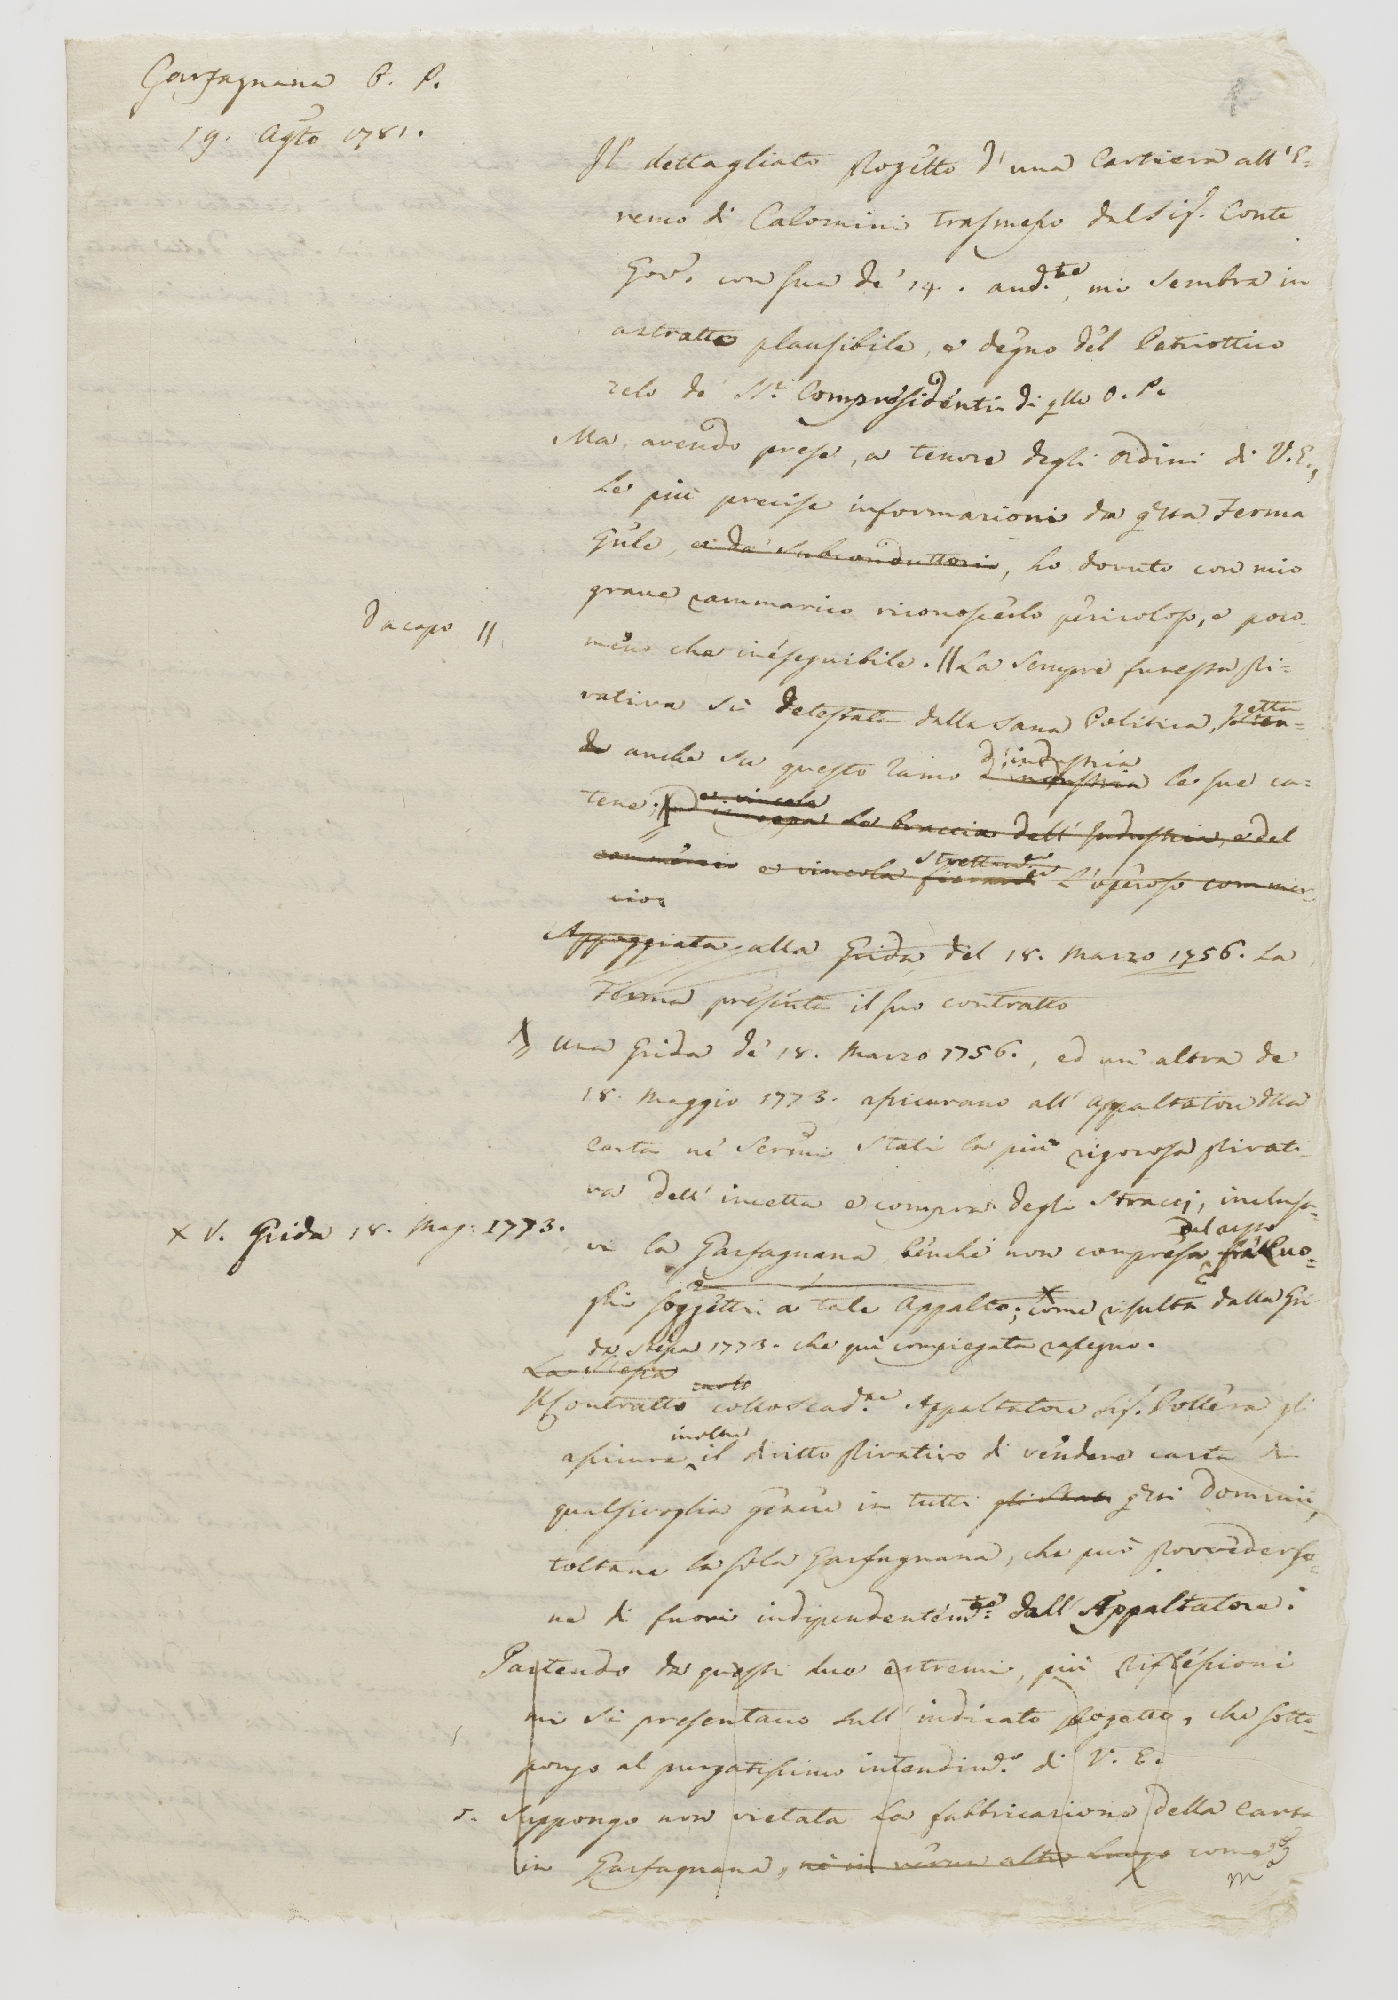 Garfagnana O. P.
19. Agto 1781.
Il dettagliato Progetto d'una Cartiera all'E=
remo di Calomini trasmesso dal Sig. Conte
Govr. con sua de' 14. and.te, mi sembra in
astratto plausibile, e degno del Patriottico
zelo de' Sri. Compresidenti di qllo O. P.
Ma avendo prese, a tenore degli ordini di V. E.,
le più precise informazioni da qsta Ferma
Gnle, e da' Subconduttori, ho dovuto con mio
grave rammarico riconoscerlo pericoloso, e poco
Da capo //
meno che ineseguibile. // La sempre funesta Pri=
vativa sì detestata dalla sana Politica, etta
de anche su questo ramo d'industria le sue ca=
d'industria
tene. e vincola
inceppa le braccia dell'Industria, e del
commercio e vincola strettamente l'operoso commer
cio.
Appoggiata alla Grida del 18. Marzo 1756. La
Ferma presenta il suo contratto
Una Grida de' 18. Marzo 1756., ed un'altra de
18. Maggio 1773. assicurano all'Appaltatore dlla
Carta ne' Sermi Stati la più rigorosa Privati
va dell'incetta e compra degli Stracci, inclusi=
X V. Grida 18. Mag. 1773.
ve la Garfagnana benchè non compresa fra' Luo=
ghi soggetti a tale Appalto; X come risulta dalla Gri
da stessa 1773. che quì compiegata rassegno.
La stessa
Il Contratto collo Scad.ne Appaltatore Sig. Pollera gli
inoltre
assicura il diritto Privativo di vendere carta di
qualsivoglia genere in tutti gli Stati qsti Dominii,
toltane la sola Garfagnana, che può provvederse=
ne di fuori indipendentem.te dall'Appaltatore.
Partendo da questi due estremi, più riflessioni
mi si presentano sull'indicato Progetto, che sotto=
pongo al purgatissimo intendim.o di V. E.
Suppongo non vietata la fabbricazione della Carta
in Garfagnana, nè in verun altro Luogo come